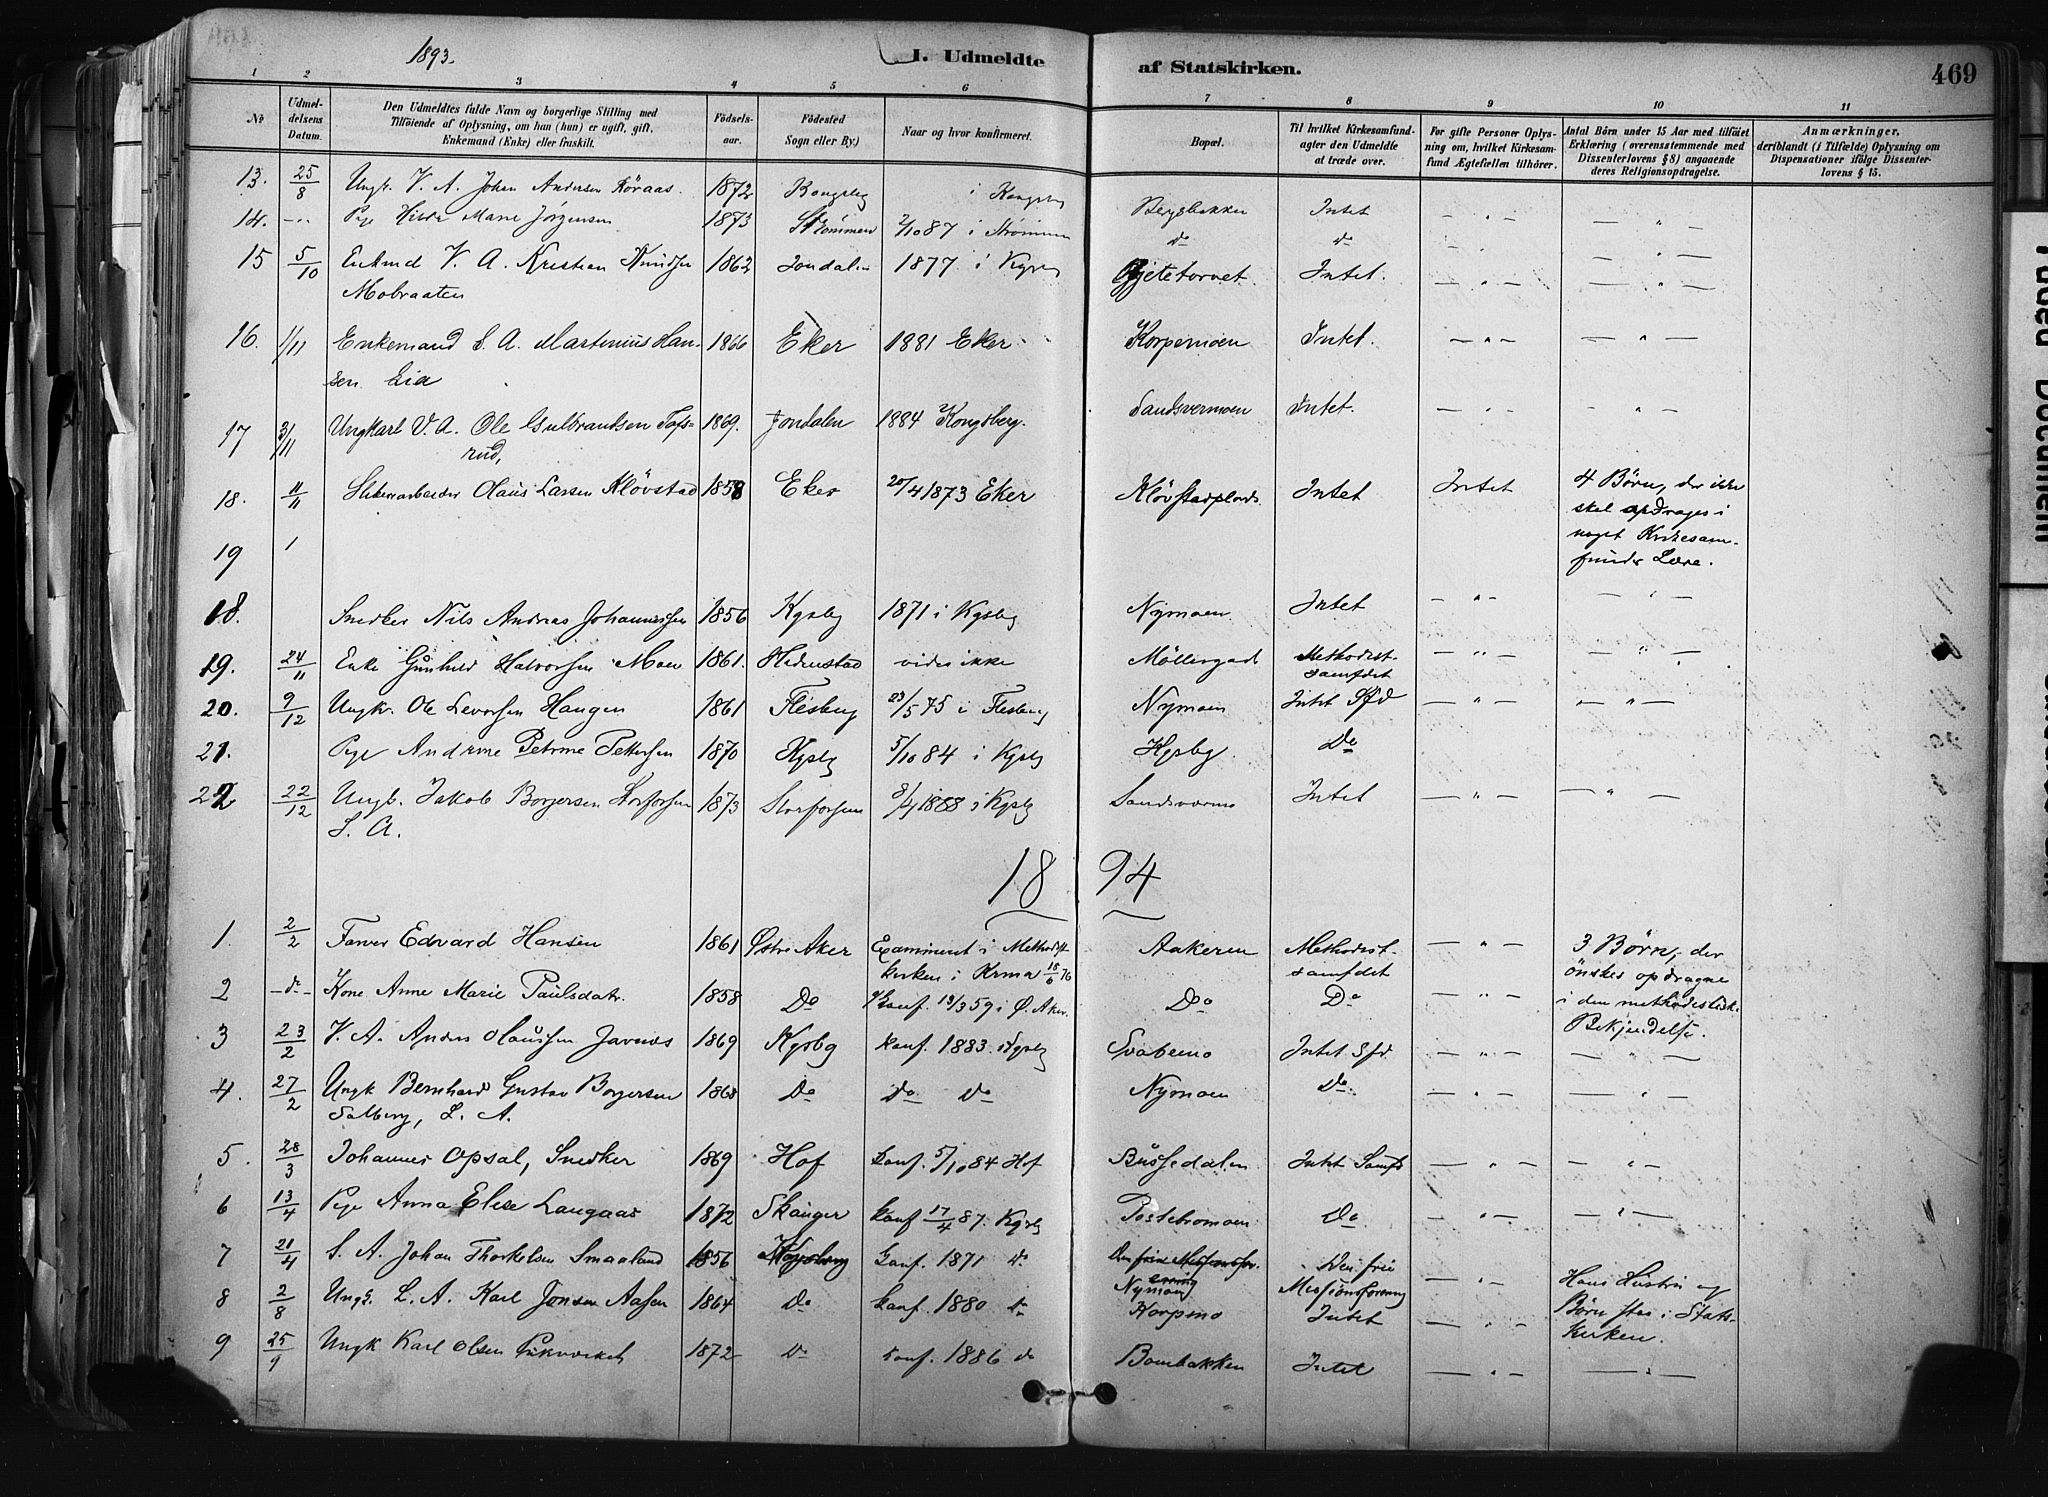 1893.
I. Udmeldte af Statskirken.
469
1 2 3 4 5 6 7 8 9 10 11
No
Udmeldelsens Datum.
Den Udmeldtes fulde Navn og borgerlige Stilling med
Tilføiende af Oplysning, om han (hun) er ugift, gift,
Enkemand (Enke) eller fraskilt.
Fødselsaar.
Fødested
Sogn eller By.)
Naar og hvor konfirmeret.
Bopæl.
Til hvilket Kirkesamfund-
agter den Udmeldte
at træde over.
For gifte Personer Oplys-
ning om, hvilket Kirkesam-
fund Ægtefællen tilhører.
Antal Børn under 15 Aar med tilføiet
Erklæring (overensstemmende med
Dissenterlovens § 8) angaaende
deres Religionsopdragelse.
Anmærkninger,
deriblandt (i Tilfælde) Oplysning om
Dispensationer ifølge Dissenter-
lovens § 15.
13. 25/8 Ungk. V. A. Johan Andersen 1872 Kongsbg i Kongsbg Bergsbakken Intet — " —
14. —"— Pige Marie Jørgensen 1873 Strømmen 2/10 87 i Strømmen do do — " —
15 5/10 Enkmd V. A. Kristian Knudsen 1862 Jondalen 1877 i Kgsbg Gjetetorvet Intet. — " — — " —
Mobraaten
16. 1/11 Enkemand S. A. Martinius Han- 1866 Eker 1881 Eker Korpemoen Intet. — " — — " —
sen Lia
17 3/11 Ungkarl V. A. Ole Gulbrandsen Tofs- 1869. Jondalen 1884 Kongsberg. Sandsvermoen Intet. — " — — " —
rud,
18. 11/11 Olaus Larsen Kløvstad 1858 Eker 20/4 1873 Eker Intet Intet 4 Børn, der ikke
skal opdrages i
noget Kirkesam-
funds Lære.
19
18. Snedker Nils Andreas Johannessen 1856 Kgsbg 1871 i Kgsbg Nymoen Intet — " — — " —
19. 24/11 Enke Gunhild Halvorsen Moen 1861. Hedenstad vides ikke Möllergad Methodist- — " — — " —
samfdet
20. 9/12 Ungk. Ole Levorsen Haugen 1861 Flesberg 23/5 75 i Flesberg Nymoen Intet Sfd — " — — " —
21. Pige Andrine Petrine Pettersen 1870 Kgsbg 5/10 84 i Kgsbg Kgsbg. Do
22 22/12 Ungk. Jakob Borgersen Storforsen 1873 Storforsen 8/4 1888 i Kgsbg Sandsværmo Intet — " — — " —
S. A.
18 94
1. 2/2 Farver Edvard Hansen 1861 Østre Aker Examineret i Methodist- Aakeren Methodist- — " — 3 Børn, der
kirken i Krnia 18/6 76 samfdet ønskes opdragne
2 —do— Kone Anne Marie Paulsdatr. 1858 Do Konf. 13/3 59 i Ø. Aker. Do Do — " — i den methodistisk.
Bekjendelse.
3 23/2 V. A. Anders Olaussen 1869 Kgsbg konf. 1883. i Kgsbg Svabemo Intet Sfd. — " — — " —
4. 27/2 Ungk Bernhard Gustav Borgersen 1868 Do Do Do Nymoen Do — " — — " —
Solberg, L. A.
5. 28/3 Johannes Opsal, Snedker 1869 Hof konf. 5/10 84 Hof Bussedalen Intet Samfd — " — — " —
6 13/4 Pige Anna Elise Langaas 1872 Skauger konf 17/4 87. Kgsbg Do — " — — " —
7 21/4 S. A. Johan Thorkelsen Smaaland 1856 Kongsberg konf. 1871 do Den frie Missionsfor- Den frie — " — Hans Hustru og
ening
Nymoen Missionsforening Børn staa i Stats-
Kirken.
8 2/8 Ungk. L. A. Karl Jonsen Aasen 1864 Do konf. 1880 do Korpmo Intet — " —
9 25/9 Ungk Karl Olsen 1872 Do konf. 1886 do Bombakken Intet — " — — " —